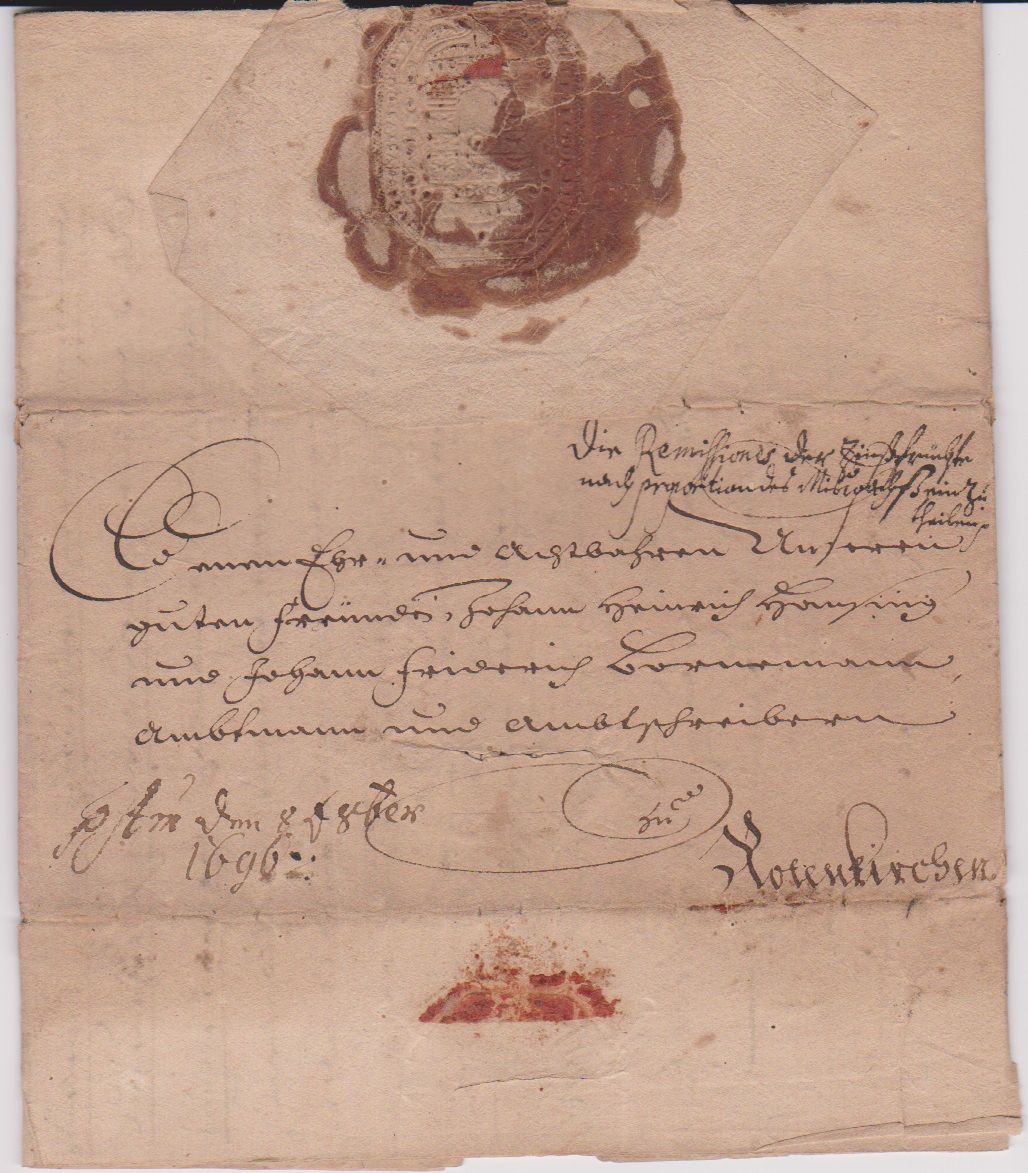 Die Remissiones der Zinßfrüchte
nach proportion des Mißwachß ein zu
theilen.
Denen Ehr- und Achtbahren Unseren
guten Freunden, Johann Heinrich
und Johann Friderich Bornemann,
Ambtmann und Ambtschreibern
zu
Rotenkirchen.
den 8t 8bter
1696